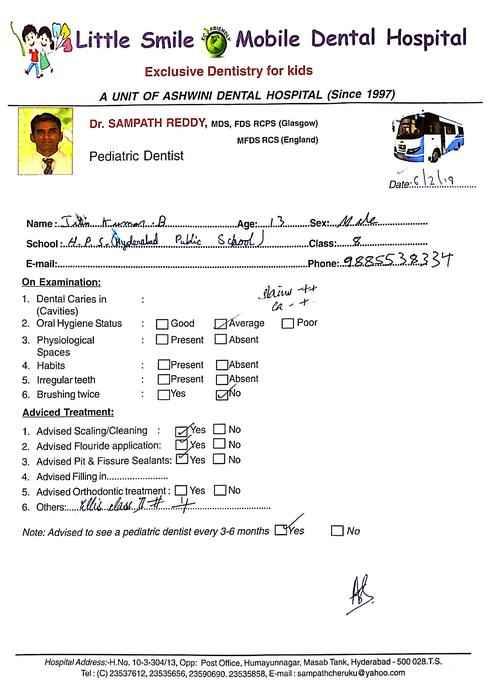 Little Smile ECO FRIENDLY Mobile Dental Hospital
Exclusive Dentistry for kids
A UNIT OF ASHWINI DENTAL HOSPITAL (Since 1997)
Dr. SAMPATH REDDY, MDS, FDS RCPS (Glasgow)
MFDS RCS (England)
Pediatric Dentist
Date: 6/2/19
Name: Kumar. B Age: 13 Sex: Male
School: H.P.S. (Hyderabad Public School) Class: 8
E-mail: Phone: 9885538334
On Examination:
Stains ++
Ca - +
1. Dental Caries in :
(Cavities)
2. Oral Hygiene Status : Good Average Poor
3. Physiological : Present Absent
Spaces
4. Habits : Present Absent
5. Irregular teeth : Present Absent
6. Brushing twice : Yes No
Adviced Treatment:
1. Advised Scaling/Cleaning : Yes No
2. Advised Flouride application: Yes No
3. Advised Pit & Fissure Sealants: Yes No
4. Advised Filling in
5. Advised Orthodontic treatment : Yes No
6. Others: Ellis class II #
Note: Advised to see a pediatric dentist every 3-6 months Yes No
Hospital Address:-H.No. 10-3-304/13, Opp: Post Office, Humayunnagar, Masab Tank, Hyderabad - 500 028.T.S.
Tel : (C) 23537612, 23535656, 23590690. 23535858, E-mail : sampathcheruku@yahoo.com